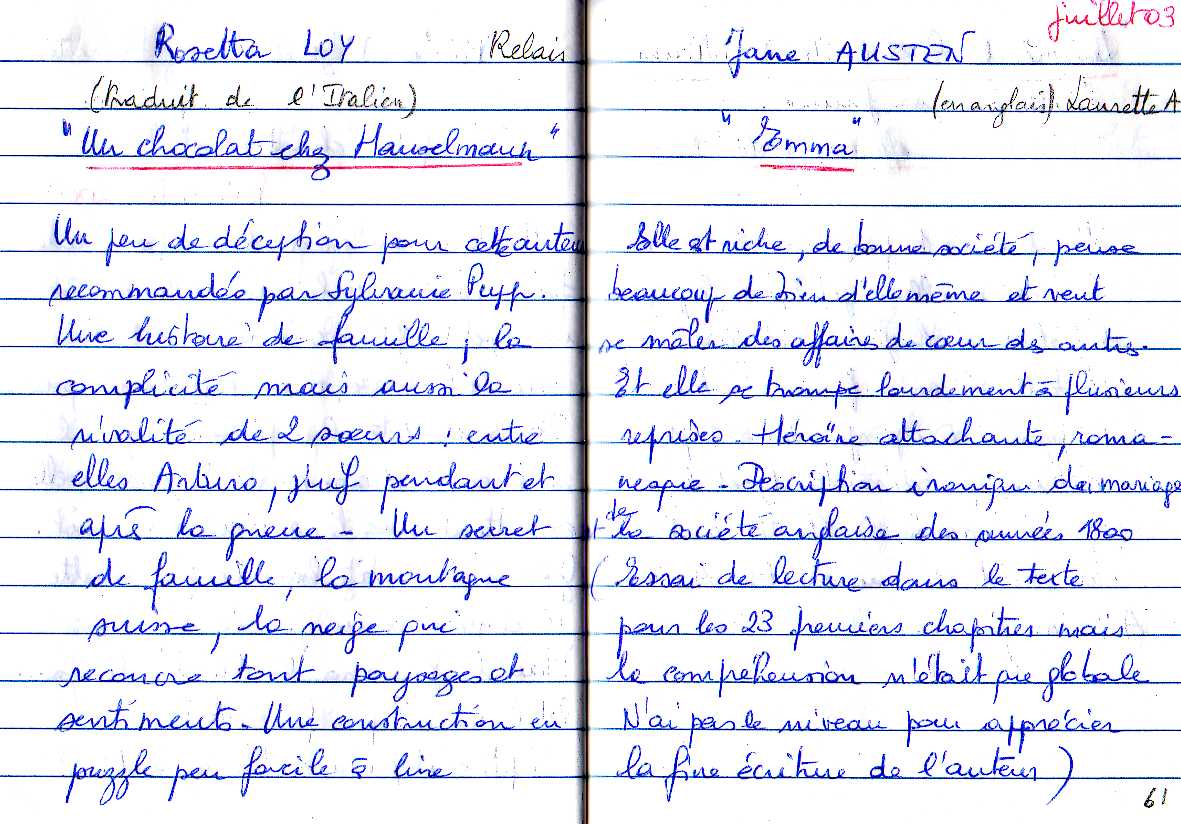 Rosetta LOY Relais
(traduit de l'Italien)
"Un chocolat chez Hanselmann"
Un peu de déception pour cette auteur
recommandée par Sylvanie
Une histoire de famille, la
complicité mais aussi la
rivalité de 2 soeurs : entre
elles Arturo, juif pendant et
après la guerre - Un secret
de famille, la montagne
suisse, la neige qui
recouvre tout paysages et
sentiments. Une construction en
puzzle peu facile à lire
juillet 03
Jane AUSTEN
(en anglais) Laurette A
"Emma"
Elle est riche, de bonne société, pense
beaucoup de bien d'elle même et veut
se mêler des affaires de cœur des autres.
Et elle se trompe lourdement à plusieurs
reprises. Héroïne attachante, roma-
nesque - Description ironique du mariage
et de la société anglaise des années 1800
(Essai de lecture dans le texte
pour les 23 premiers chapitres mais
la compréhension n'était que globale
N'ai pas le niveau pour apprécier
la fine écriture de l'auteur)
61